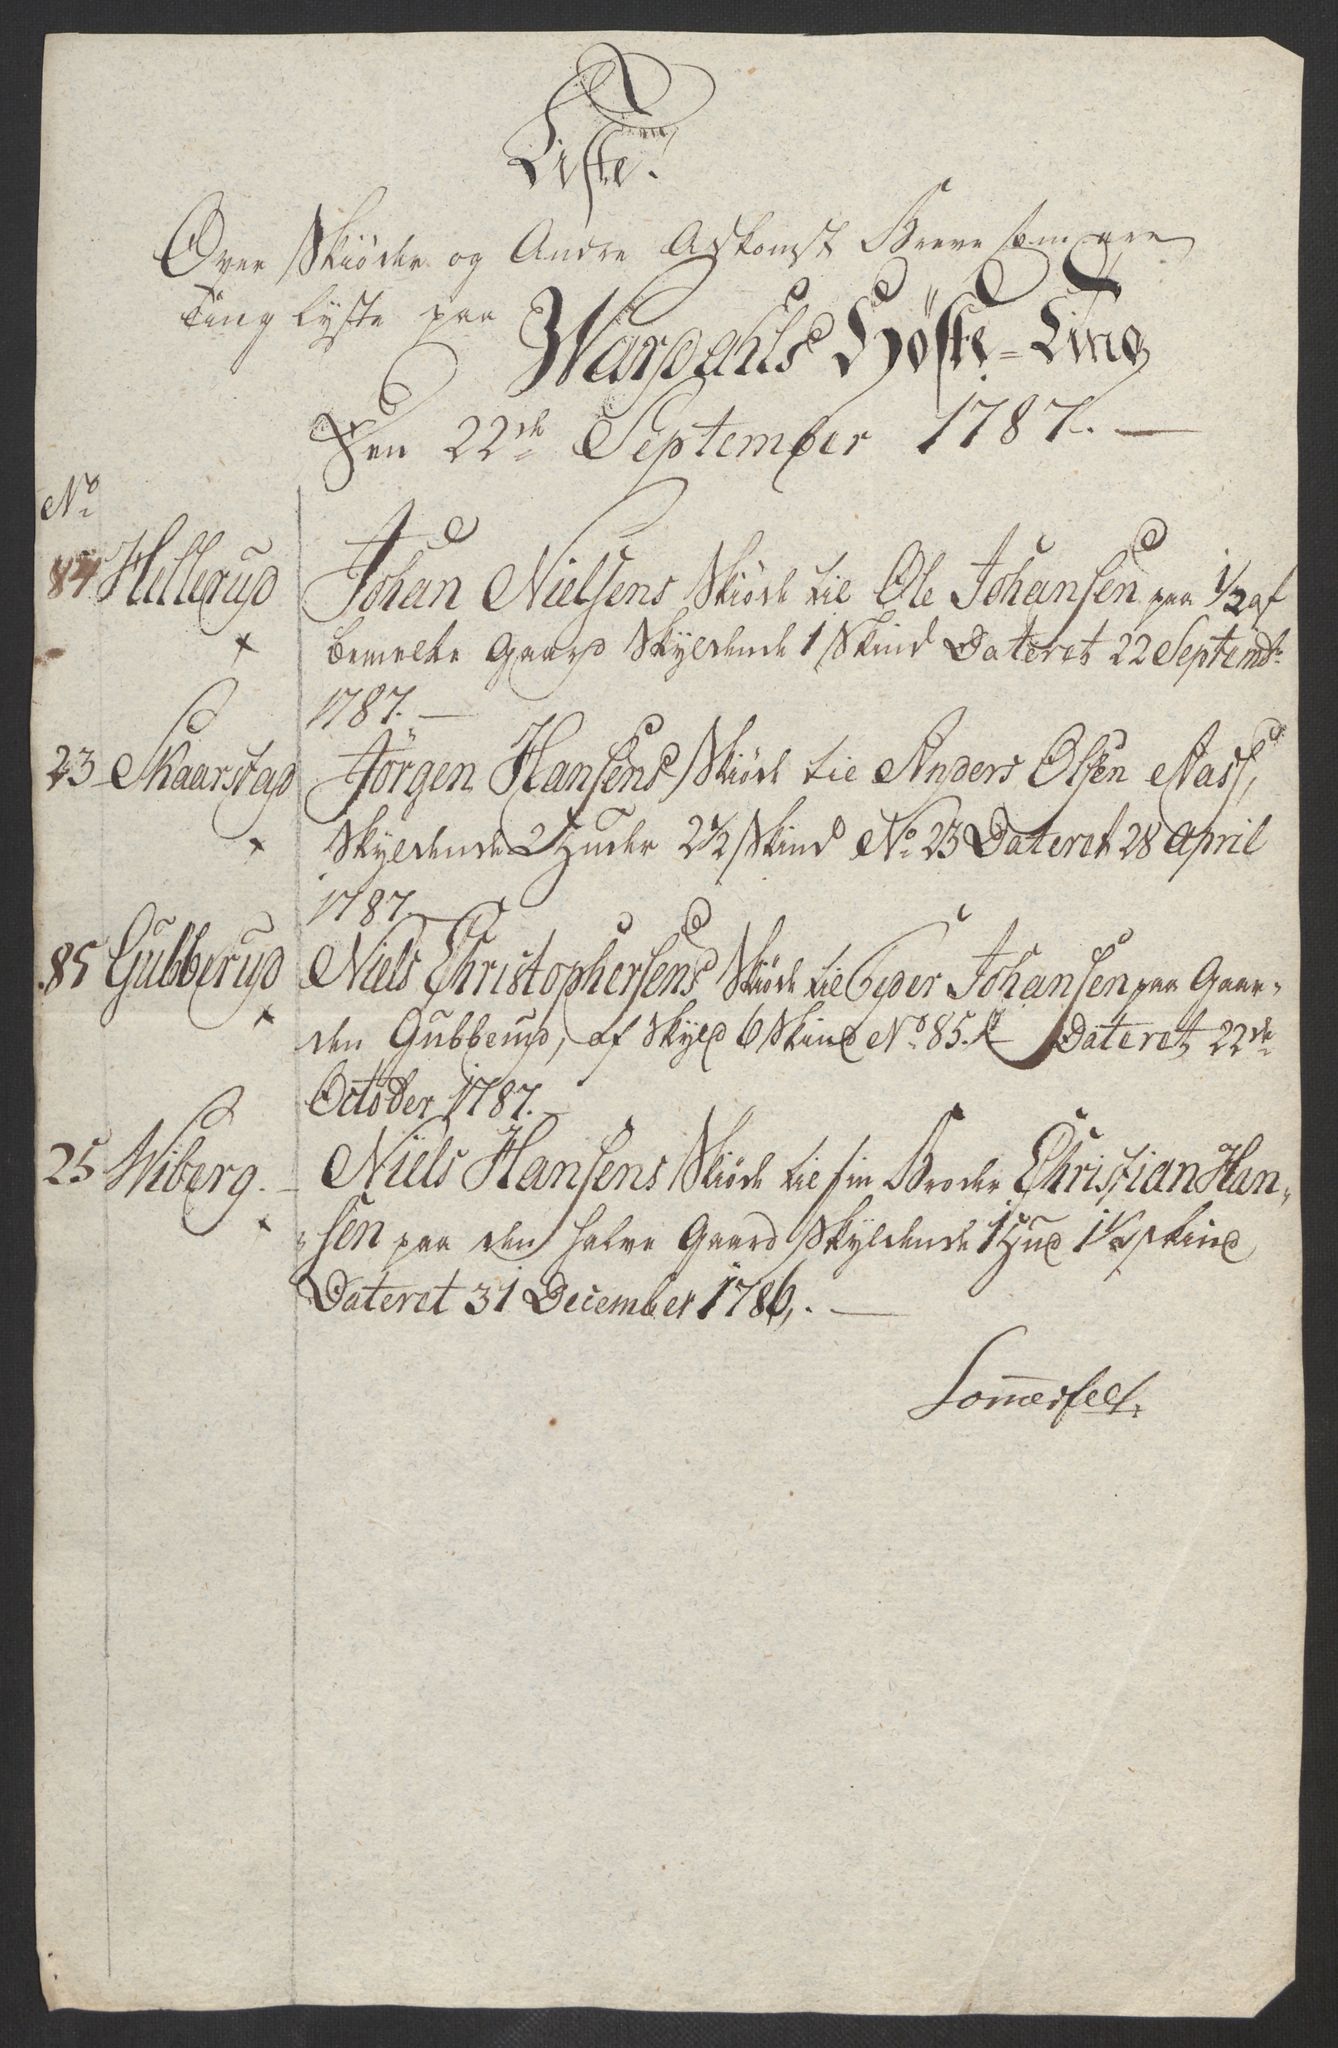 Liste.
Over Skiøder og Andre Adkomst Breve som ere
Tinglyste paa Wardahls Høste=Ting
Den 22de September 1787. —
No
84 Hellerud Johan Nielsens Skiøde til Ole Johansen paa 1/2 af
bemelte Gaard Skyldende 1 Skind Dateret 22 Septembr
1787. —
23 Skaarstad Jørgen Hansens Skiøde til Anders Olsen Aass,
Skyldende 2 Huder 2 1/2 Skind No 23 Dateret 28 April
1787.
85 Gubberud Niels Christophersens Skiøde til Peder Johansen paa Gaar-
den Gubberud, af Skyld 6 Skind No 85. Dateret 22de
October 1787. —
25 Wiberg. — Niels Hansens Skiøde til sin Broder Christian Han-
sen paa den halve Gaard Skyldende 1 Hud 1 1/4 skind
Dateret 31 December 1786,. —
Somerfelt.